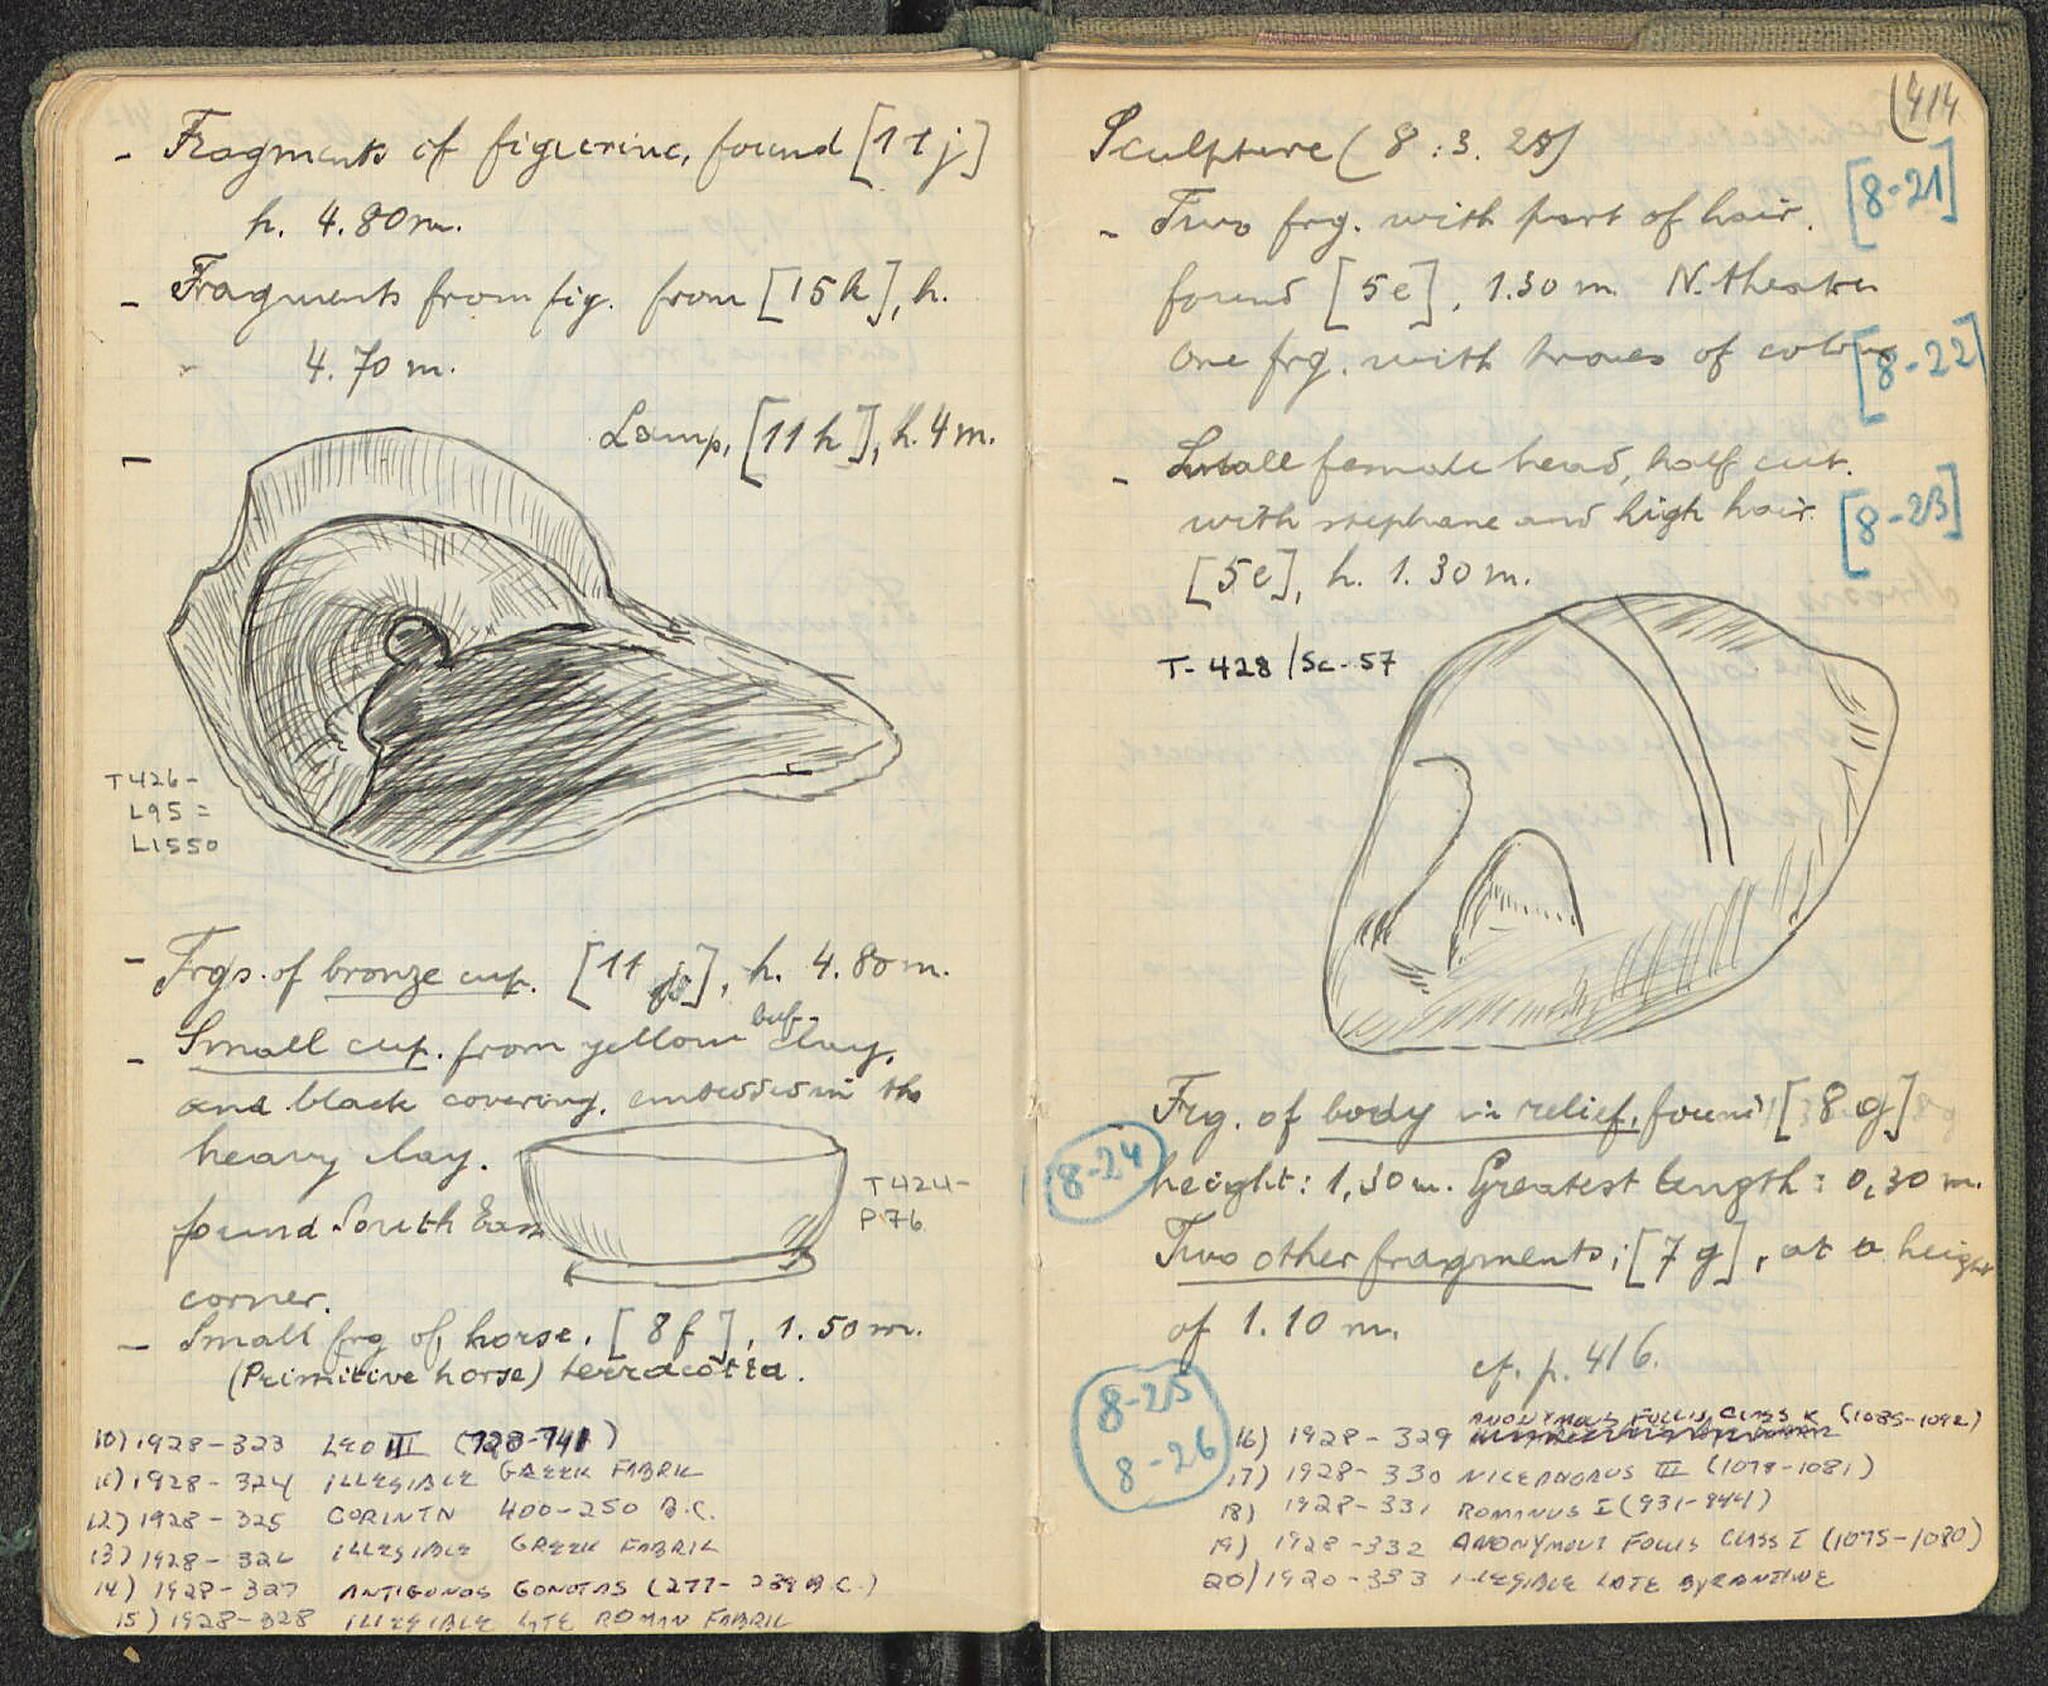 - Fragments of figuerine, found [11 j]
h. 4.80 m.
- Fragments from fig. from [15 h], h.
4.70 m.
- Lamp, [11 h], h. 4 m.
T426-
L95 =
L1550
- Frgs. of bronze cup. [11 j], h. 4.80 m.
- Small cup. from yellow buf- clay,
and black covering, in the
heavy clay.
found South East
corner.
T424-
P76
- Small frg of horse. [8 f], 1.50 m.
(Primitive horse) terracotta.
10) 1928-323 LEO III (720-741)
11) 1928-324 ILLEGIBLE GREEK FABRIC
12) 1928-325 CORINTH 400-250 B.C.
13) 1928-326 ILLEGIBLE GREEK FABRIC
14) 1928-327 ANTIGONOS GONOTAS (277-239 B.C.)
15) 1928-328 ILLEGIBLE LATE ROMAN FABRIC
414
Sculpture (8:3. 28)
[8-21]
- Two frg. with part of hair.
found [5e], 1.30 m. N. theater
One frg. with traces of colour
[8-22]
- Small female head, half cut.
with stephane and high hair.
[8-23]
[5e], h. 1.30 m.
T-428/Sc-57
Frg. of body in relief, found [8 g]
8-24
height: 1,30 m. Greatest length: 0,30 m.
Two other fragments; [7 g], at a height
of 1.10 m.
cf. p. 416.
8-25
8-26
16) 1928-329 ANONYMOUS FOLLIS CLASS K (1085-1092)
17) 1928-330 NICEPHORUS III (1078-1081)
18) 1928-331 ROMANUS I (931-944)
19) 1928-332 ANONYMOUS FOLLIS CLASS I (1075-1080)
20) 1928-333 ILLEGIBLE LATE BYZANTINE